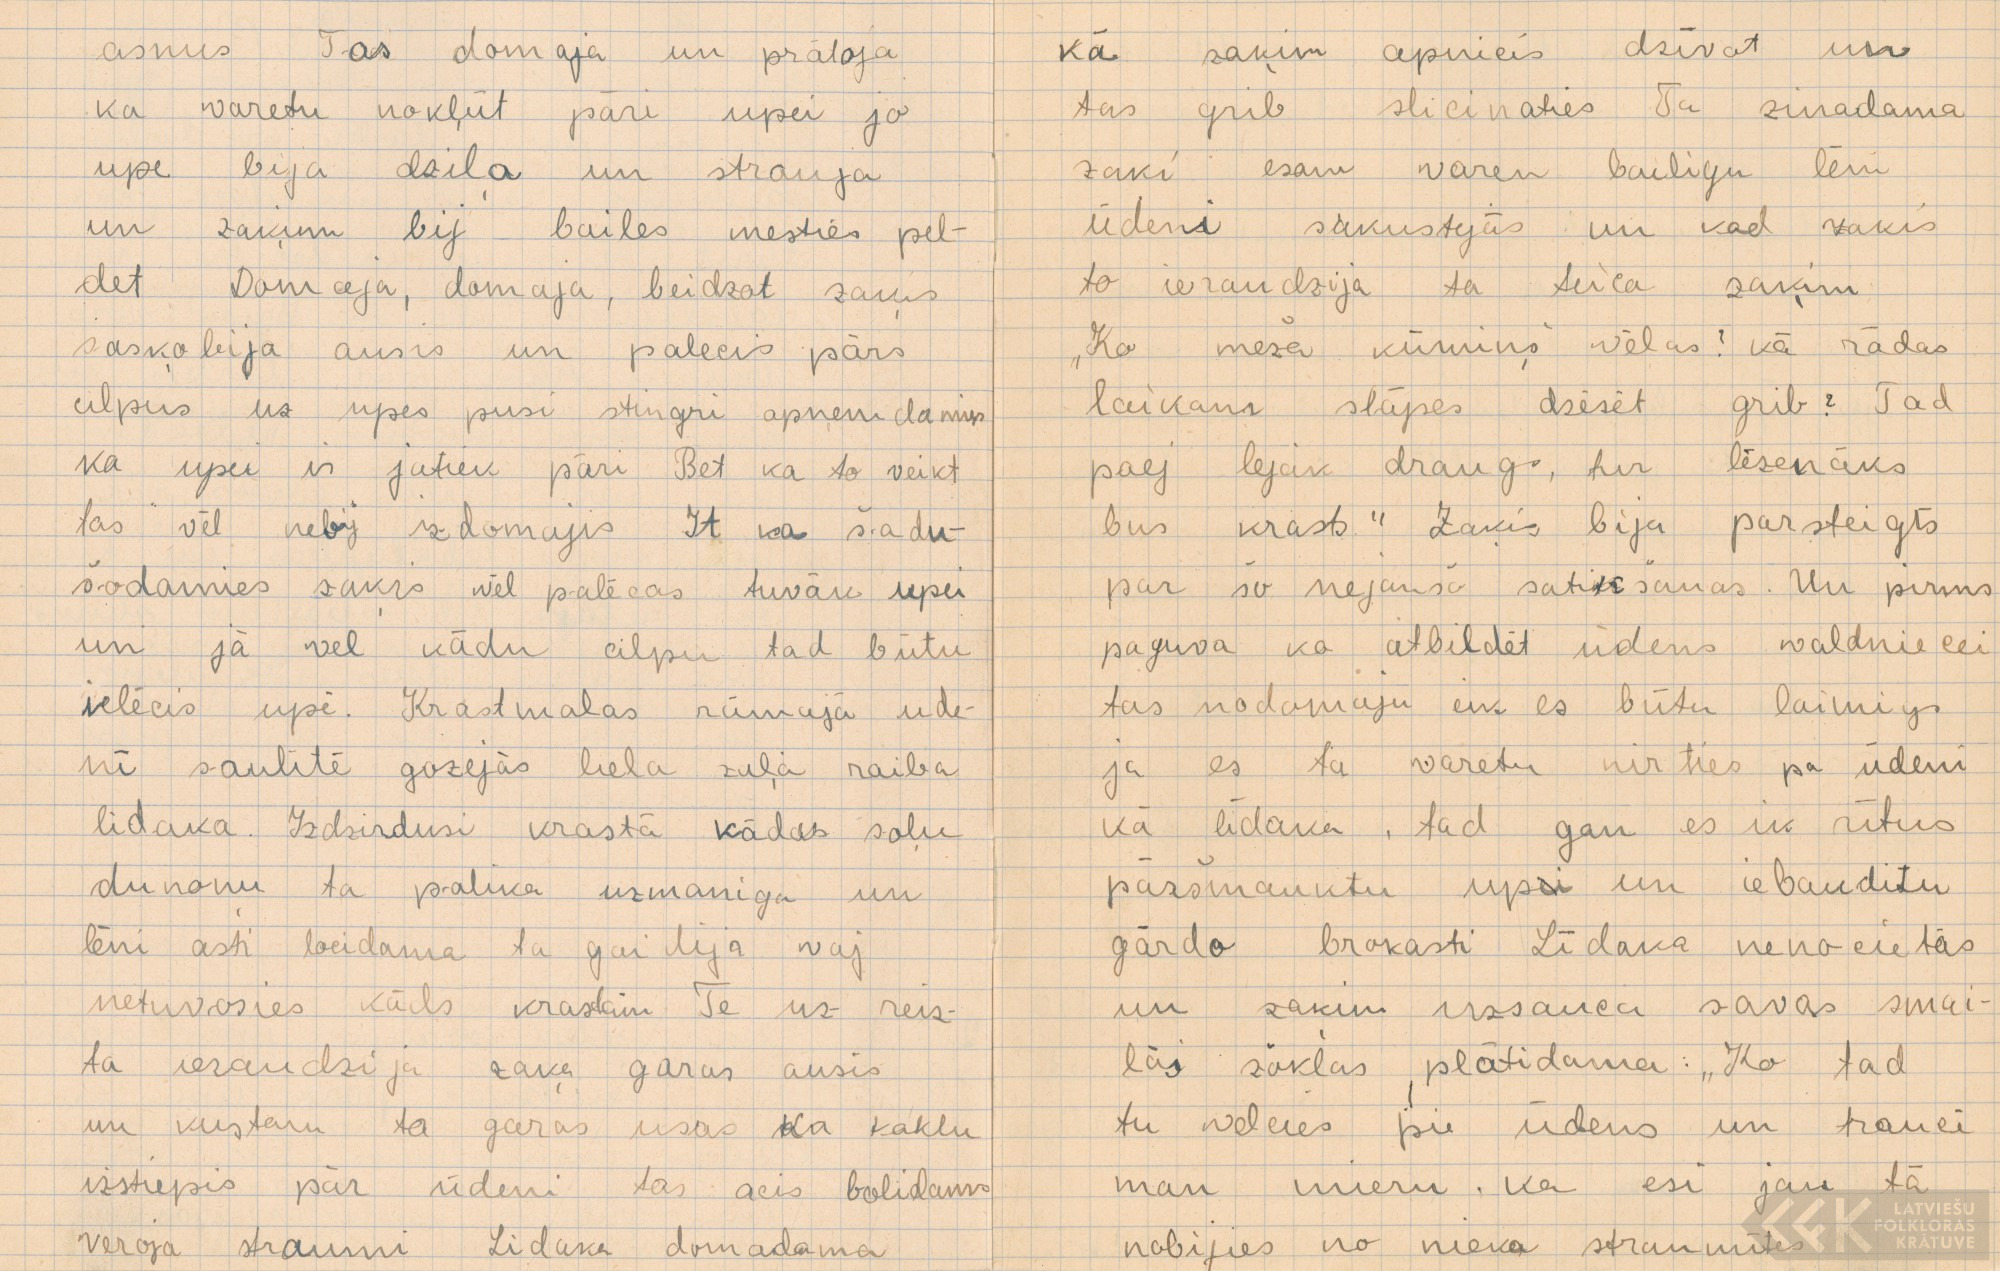 asnus Tas domaja un prātoja
ka waretu nokļūt pāri upei jo
upe bija dziļa un strauja
un zaķim bij bailes mesties pel-
dēt Domaja, domaja, beidzot zaķis
saskobija ausis un palecis pārs
cilpus uz upes pusi stingri apņemdamies
ka upei ir jatiek pāri Bet ka to veikt
tas vēl nebij izdomajis It ka šadu-
šodamies zaķis vēl palēcas tuvāk upei
un jā vel kādu cilpu tad būtu
ielēcis upē. Krastmalas rāmajā ude-
nī saulītē gozejās liela zaļa raiba
lidaka. Izdzirdusi krastā kādas soļu
dunoņu ta palika uzmaniga un
lēni asti locidama ta gaidija waj
netuvosies kāds krastam Te uz reiz-
ta ieraudzija zaķa garas ausis
un kustam ta garās usas Ka kaklu
izstiepis pār ūdeni tas acis bolidams
veroja straumi Lidaka domadama
kā zaķim apnicis dzīvot un
tas grib slicinaties Ta zinadama
zaķi esam waren bailigu lēni
ūdeni sakustejās un kad zaķis
to ieraudzija ta teica zaķim
„Ko meža kūmiņš vēlas? kā rādas
laikam slāpes dzēsēt grib? Tad
paej lejāk draugs, tur lēzenāks
bus krasts." Zaķis bija parsteigts
par šo nejaušo satikšanas. Un pirms
paguva ko atbildēt ūdens waldniecei
tas nodomaja eik es būtu laimigs
ja es ta waretu nirties pa ūdeni
kā līdaka, tad gan es ik rītus
pāršmauktu upei un iebauditu
gārdo brokasti Līdaka nenocietās
un zaķim uzsauca savas smai-
lās žokļas plātidama: „Ko tad
tu velcies pie ūdens un trauci
man mieru. ka esi jau tā
nobijies no nieka straumītes
LATVIEŠU
FOLKLORAS
KRĀTUVE